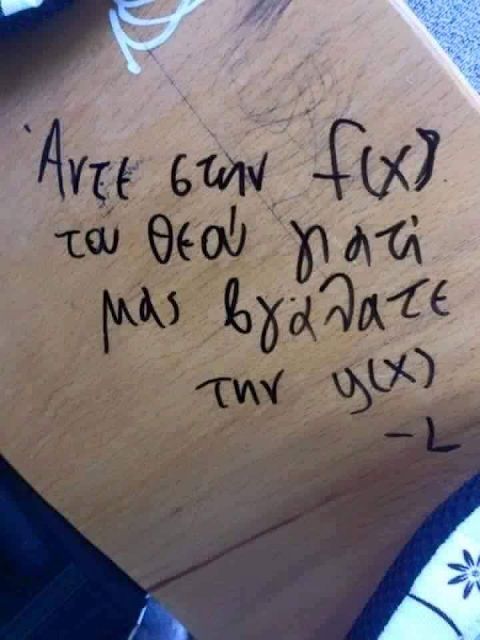 Άντε στην f(x)
του θεού γιατί
μας βγάλατε
την y(x)
-L